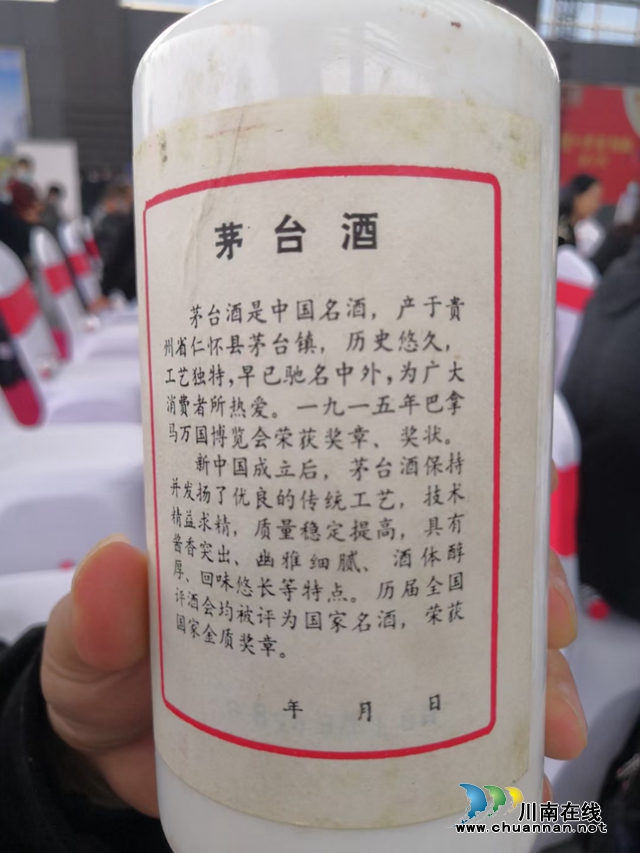 茅台酒
茅台酒是中国名酒，产于贵
州省仁怀县茅台镇，历史悠久，
工艺独特，早已驰名中外，为广大
消费者所热爱。一九一五年巴拿
马万国博览会荣获奖章、奖状。
新中国成立后，茅台酒保持
并发扬了优良的传统工艺，技术
精益求精，质量稳定提高，具有
酱香突出、幽雅细腻、酒体醇
厚、回味悠长等特点。历届全国
评酒会均被评为国家名酒，荣获
国家金质奖章。
年 月 日
川南在线
www.chuannan.net